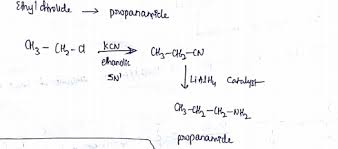 Ethyl chloride → propanamide
CH3 - CH2 - Cl KCN → CH3-CH2-CN
ethanolic
SN1
↓ LiAlH4 Catalyst
CH3-CH2-CH2-NH2
propanamide